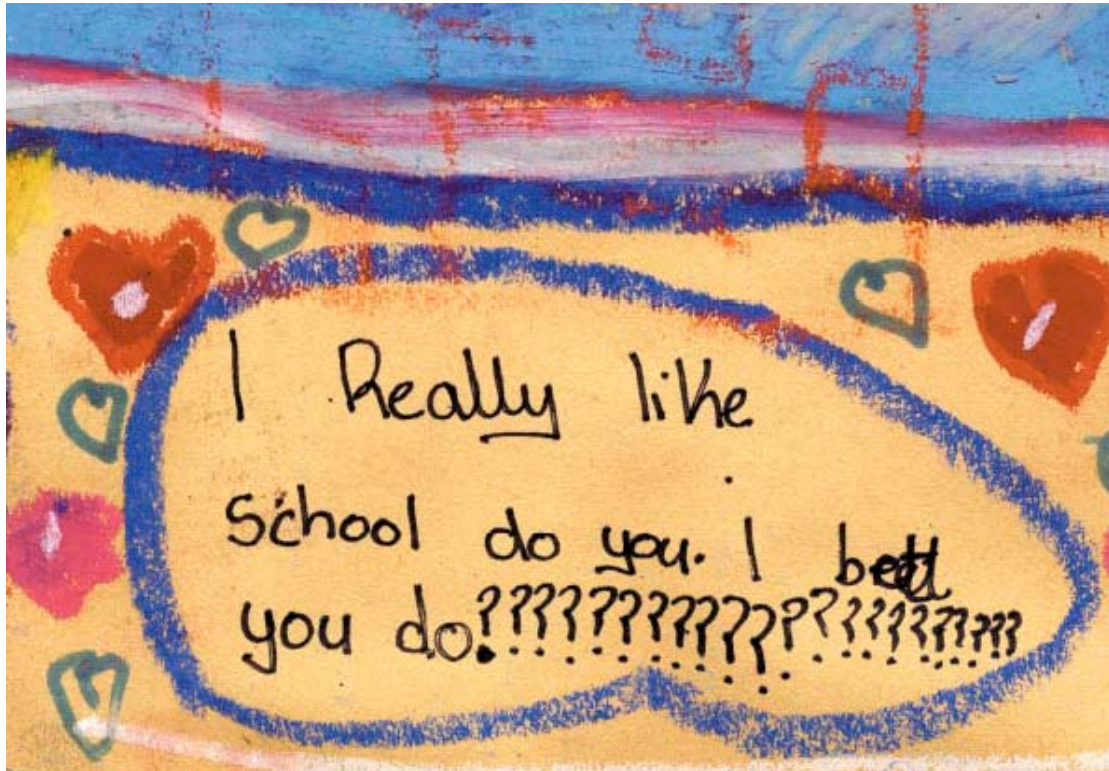 I Really like
School do you. I bett
you do.??????????????????????